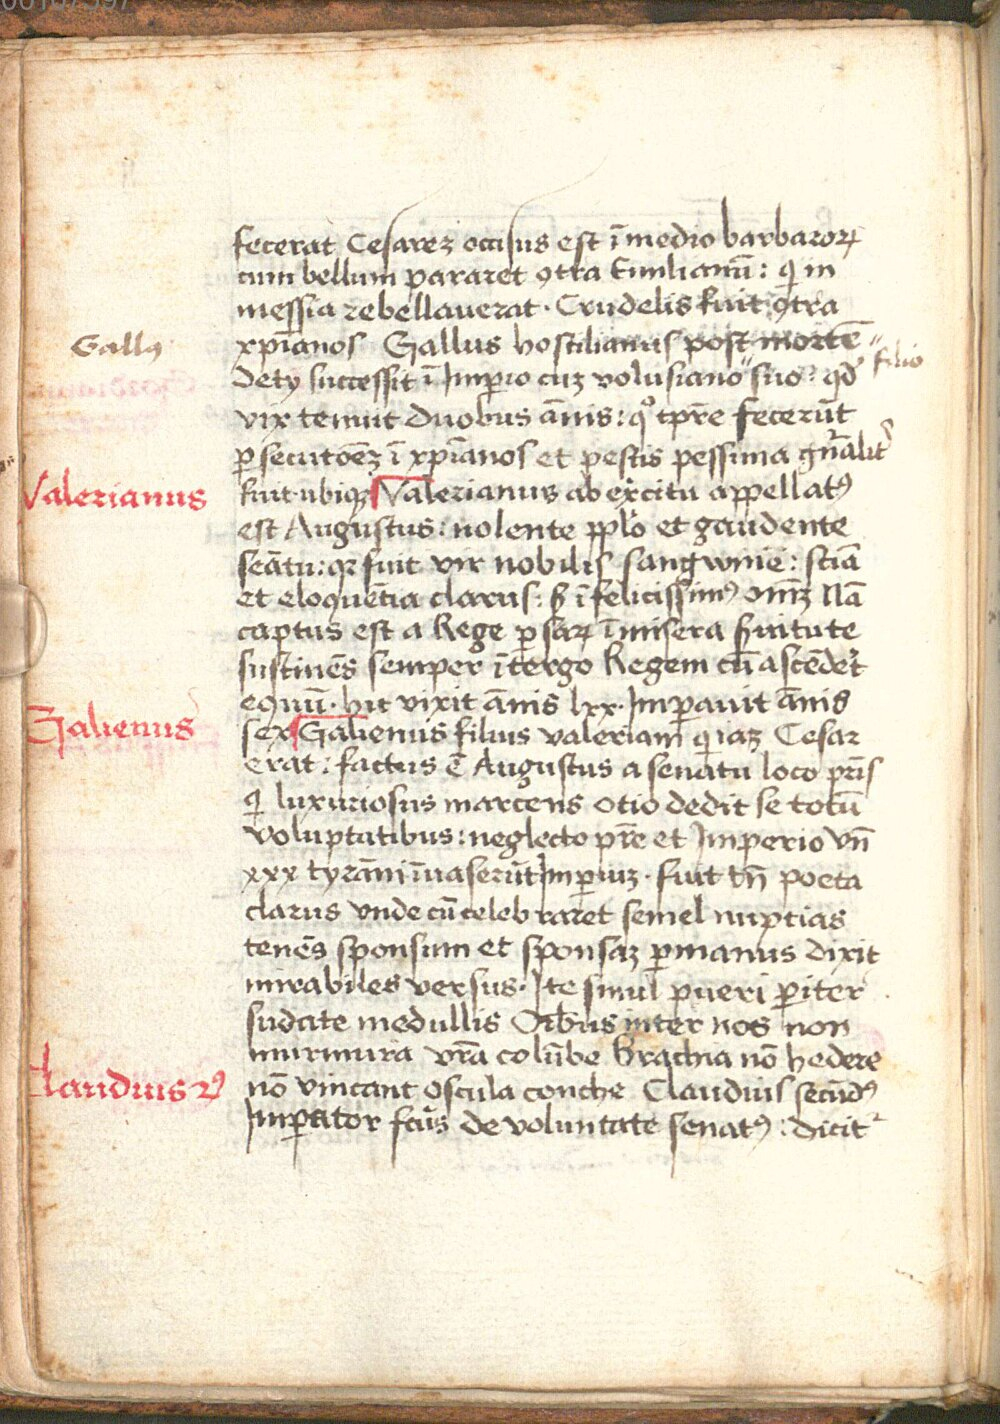 fecerat Cesarez occisus est ī medio barbaroꝝ
cum bellum pararet ꝯtra Emilianū: qi in
messia rebellauerat. Crudelis fuit ꝯtra
Gallꝰ
xpīanos Gallus hostilianus post mortē
Decij successit ī Imperio cuz volusiano" suo: qd
" filio
vix tenuit duobus ānis: qo tpre fecerūt
ꝑsecutōez ī xpīanos et pestis pessima gnāalit
Valerianus
fuit ubiqꝫ Valerianus ab excitu appellatꝰ
est Augustus: nolente pplo et gaudente
senātu: qr fuit vir nobilis sangwinie: sciā
et eloquentia clarus: ꞩ īfelicissimꝰ omīz Nā
captus est a Rege ꝑsaꝝ ī misera ꞩuitute
sustinēs semper ītergo Regem cū ascēdet
equū. hic vixit ānis lxx. Imꝑauit ānis
Galienus
sex Galienus filius valeriani qi iaz Cesar
erat: factus ē Augustus a senatu loco pris
qi luxuriosus marcens otio dedit se totū
voluptatibus: neglecto pre et Imperio vn̄
xxx tyrāni īuaserūt Imꝑiuz. fuit tn̄ poeta
clarus vnde cū celebraret semel nuptias
tenēs sponsum et sponsaz ꝑ manus dixit
mirabiles versus. Ite simul pueri ꝑiter
sudate medullis Oībus inter nos non
murmura vrā colūbe Brachia nō hedere
Claudius 2ꝰ
nō vincant oscula conche Claudius secūdꝰ
Imꝑator fcūs de voluntate senatꝰ: dicit